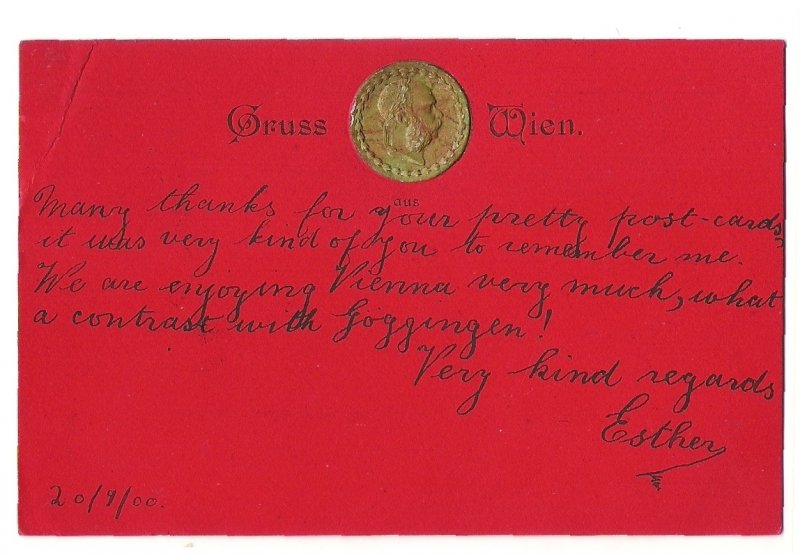 Gruss Wien.
aus
Many thanks for your pretty post-cards,
it was very kind of you to remember me.
We are enjoying Vienna very much, what
a contrast with Göggingen!
Very kind regards
Esther
20/9/00.